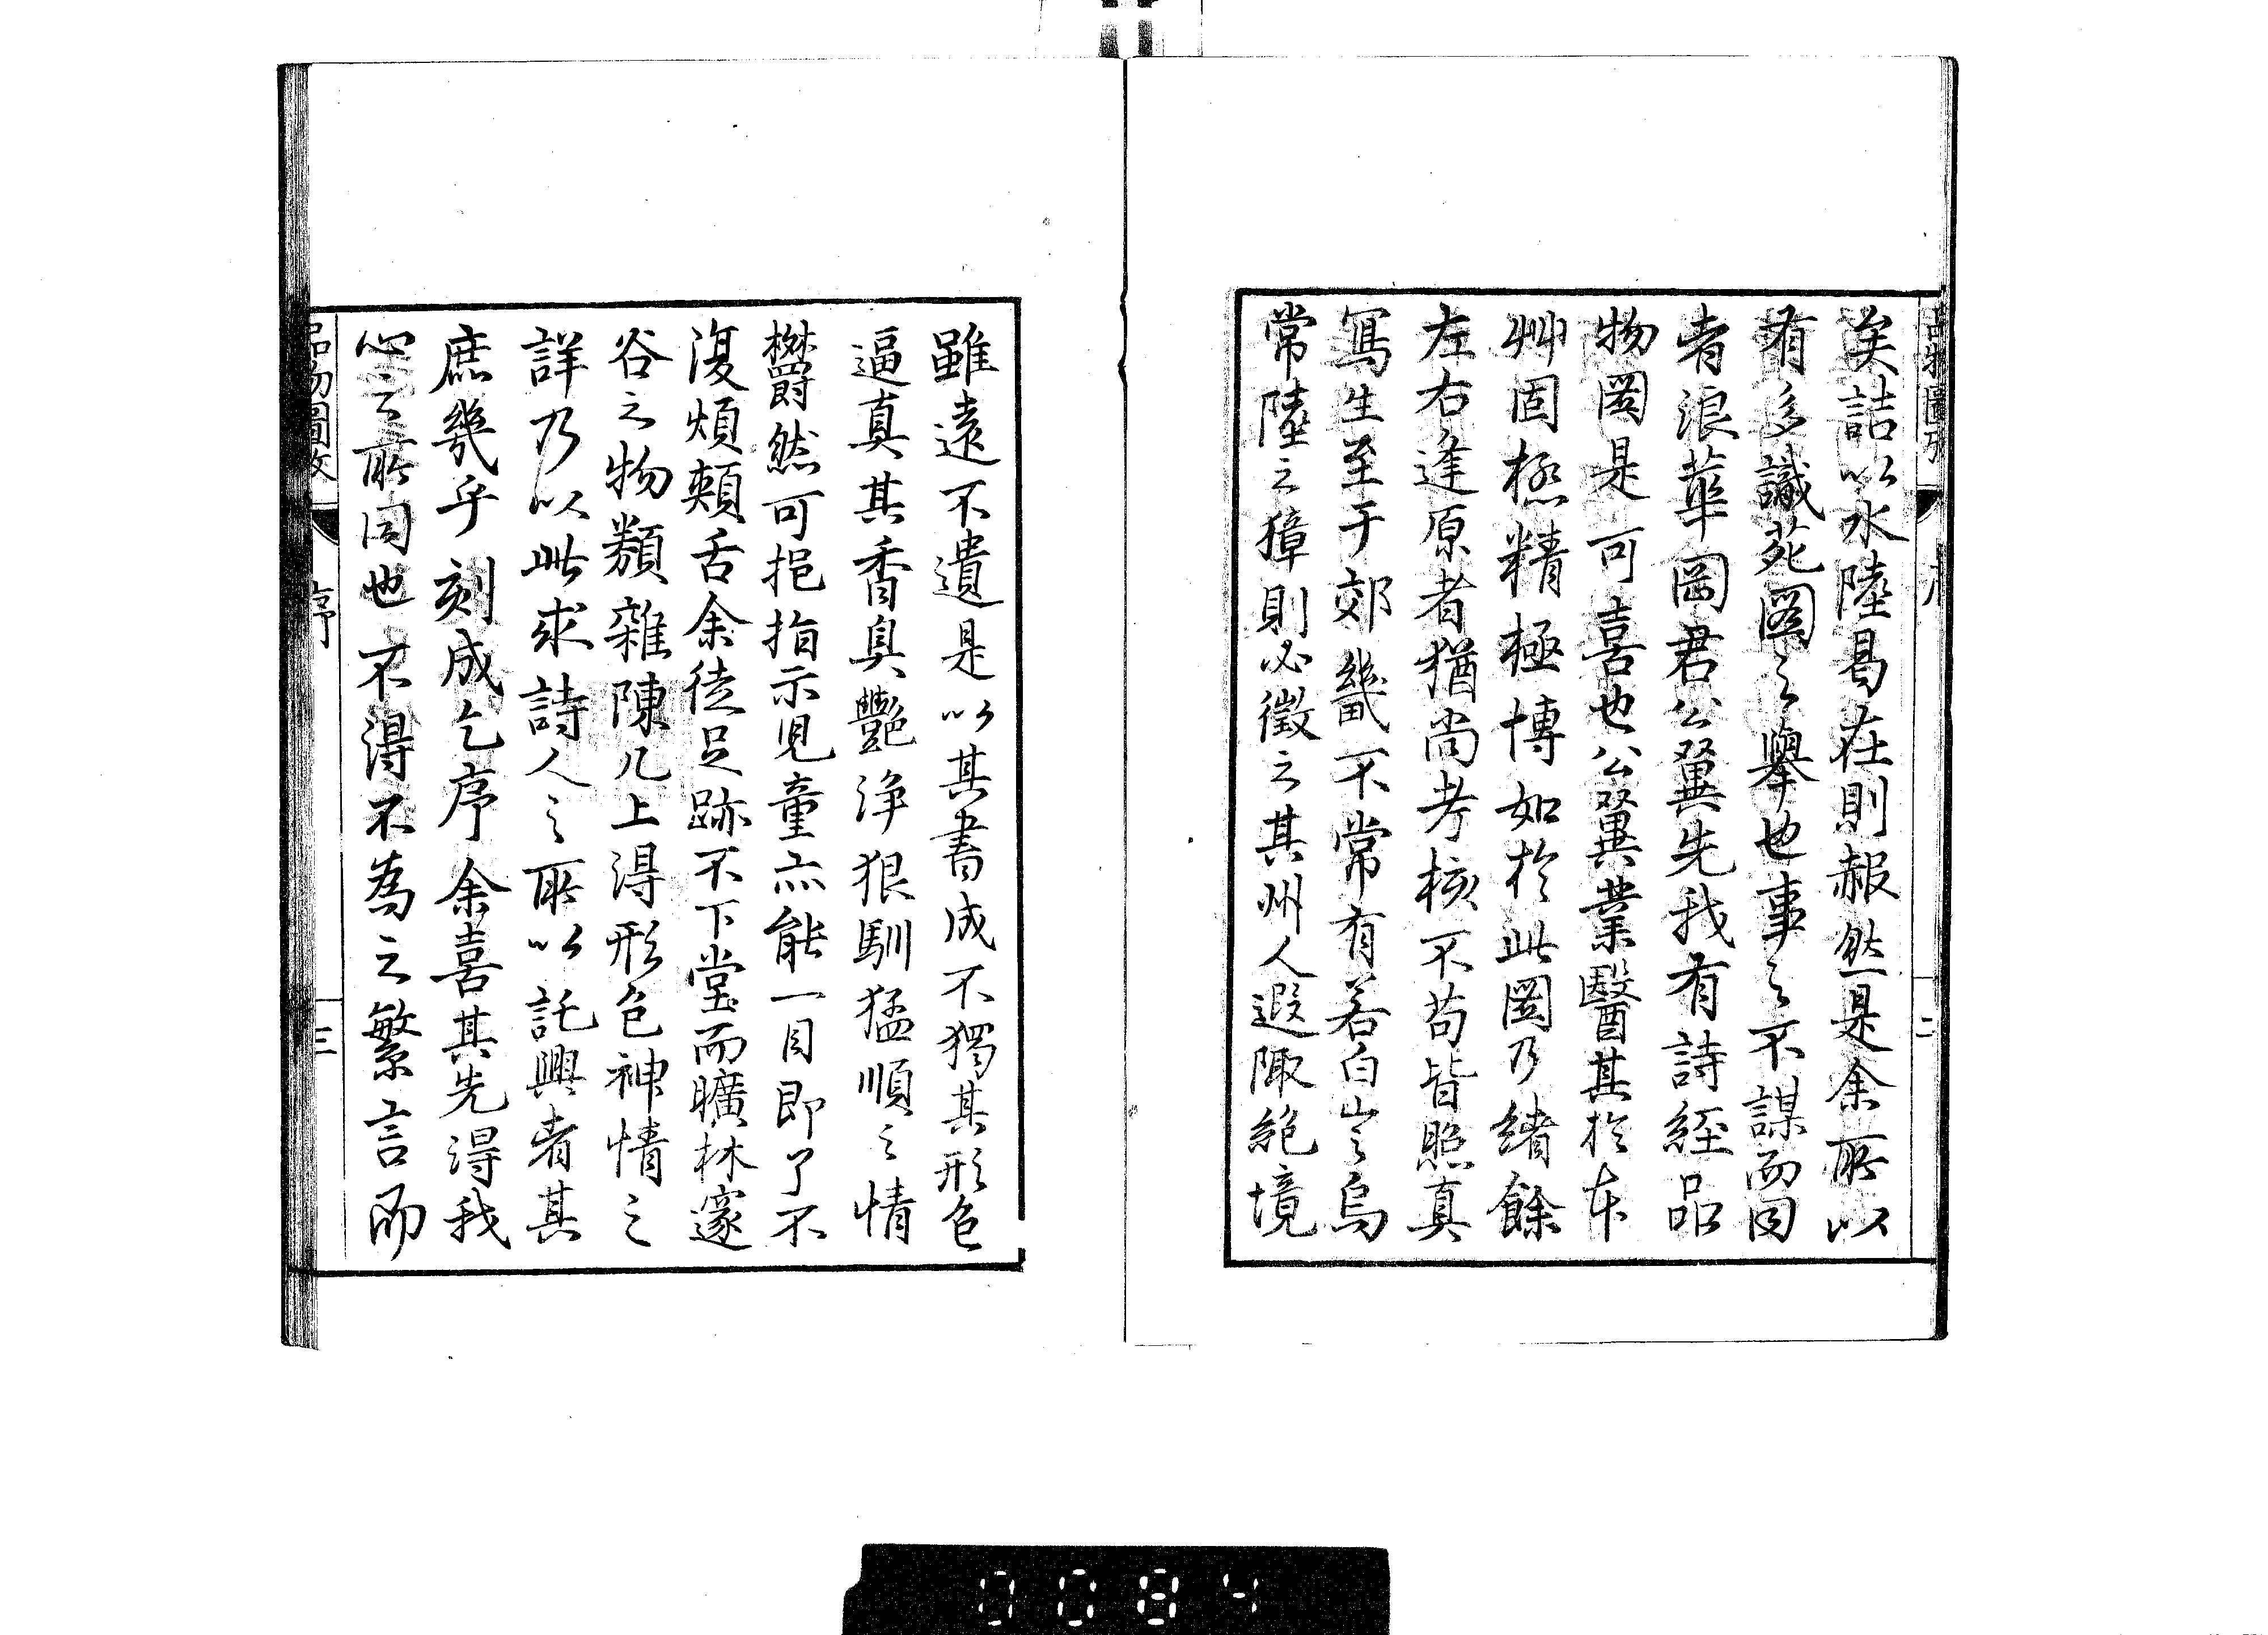 矣詰以水陸曷在則赧然是余所以
有多識苑圖之舉也事之不謀而同
者浪華岡君公翼先我有詩經品
物圖是可喜也公翼業醫其於本
艸固極精極博如於此圖乃緒餘
左右逢原者猶尚考核不苟皆照真
寫生至于郊畿不常有若白山之鳥
常陸之獐則必徵之其州人遐陬絕境
雖遠不遺是以其書成不獨其形色
逼真其香臭艷淨狠馴猛順之情
欝然可挹指示児童亦能一目即了不
復煩頰舌余徒足跡不下堂而曠林邃
谷之物類雜陳几上得形色神情之
詳乃以此求詩人之所以託興者其
庶幾乎刻成乞序余喜其先得我
心之所同也不得不為之繁言而
品物圖攷
序
三